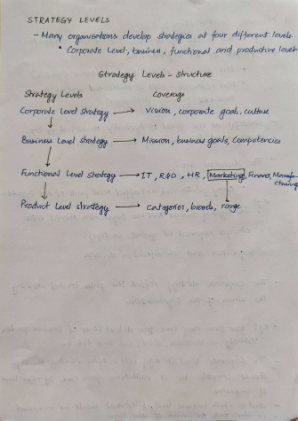 STRATEGY LEVELS
- Many organisations develop strategies at four different levels.
* Corporate Level, business, functional and productive level
Strategy Levels - Structure
Strategy Levels Coverage
Corporate Level strategy → Vision, corporate goals, culture
Business Level strategy → Mission, business goals, Competencies
Functional Level strategy → IT, R&D, HR, Marketing, Finance, Manufacturing
Product Level strategy → categories, brands, range